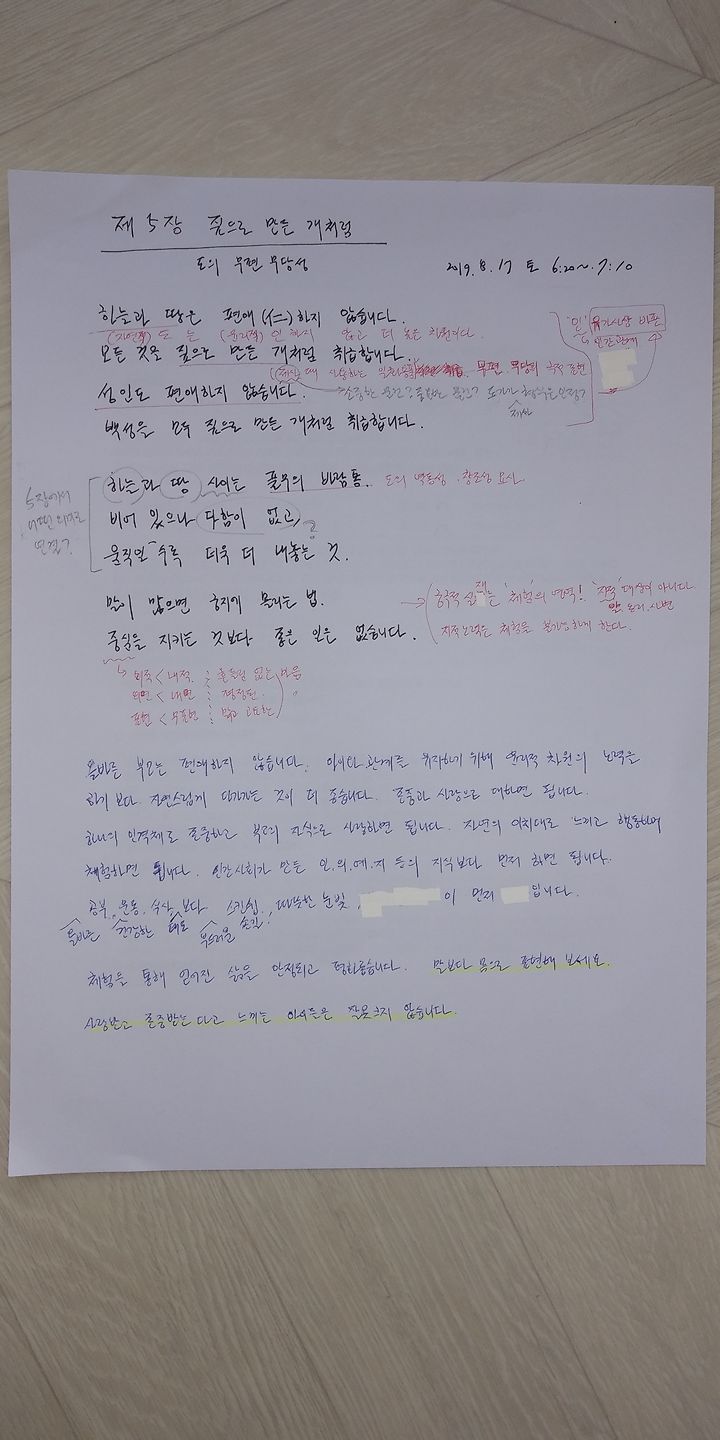 제 5장 짚으로 만든 개처럼
도의 무편 무당성
2019. 8. 17 토 6:20~7:10
하늘과 땅은 편애(仁)하지 않습니다.
(자연적) 도는 (윤리적) 인하지 않고 더 높은 차원이다.
'인' 유가사상 비판
↳ 인간관계
모든 것을 짚으로 만든 개처럼 취급합니다.
무편 무당의 표현
성인도 편애하지 않습니다.
소중한 물건? 불필요한 물건?
제사
백성을 모두 짚으로 만든 개처럼 취급합니다.
하늘과 땅 사이는 풀무의 바람통.
도의 역동성. 창조성 묘사.
5장에서 어떤 의미로 연결?
비어 있으나 다함이 없고,
움직일수록 더욱 더 내놓는 것.
말이 많으면 궁지에 몰리는 법.
→ 궁극적 실재는 '체험'의 영역! '지적' 대상이 아니다
중심을 지키는 것보다 좋은 일은 없습니다.
지적노력은 체험을 불가능하게 한다.
↳ 외적 < 내적 : 흔들림 없는 마음
외면 < 내면 : 평정된 〃
표현 < 무표현 : 맑고 고요한 〃
올바른 부모는 편애하지 않습니다. 아이와 관계를 유지하기 위해 윤리적 차원의 노력을
하기 보다 자연스럽게 다가가는 것이 더 좋습니다. 존중과 사랑으로 대하면 됩니다.
하나의 인격체로 존중하고 부모의 자식으로 사랑하면 됩니다. 자연의 이치대로 느끼고 행동하며
체험하면 됩니다. 인간사회가 만든 인.의.예.지 등의 지식보다 먼저 하면 됩니다.
공부, 운동, 식사 보다 스킨쉽, 따뜻한 눈빛, 이 먼저 입니다.
올바른 건강한 태도 부드러운 손길,
체험을 통해 얻어진 삶은 안정되고 평화롭습니다. 말보다 몸으로 표현해 보세요.
사랑받고 존중받는다고 느끼는 아이들은 잘못크지 않습니다.